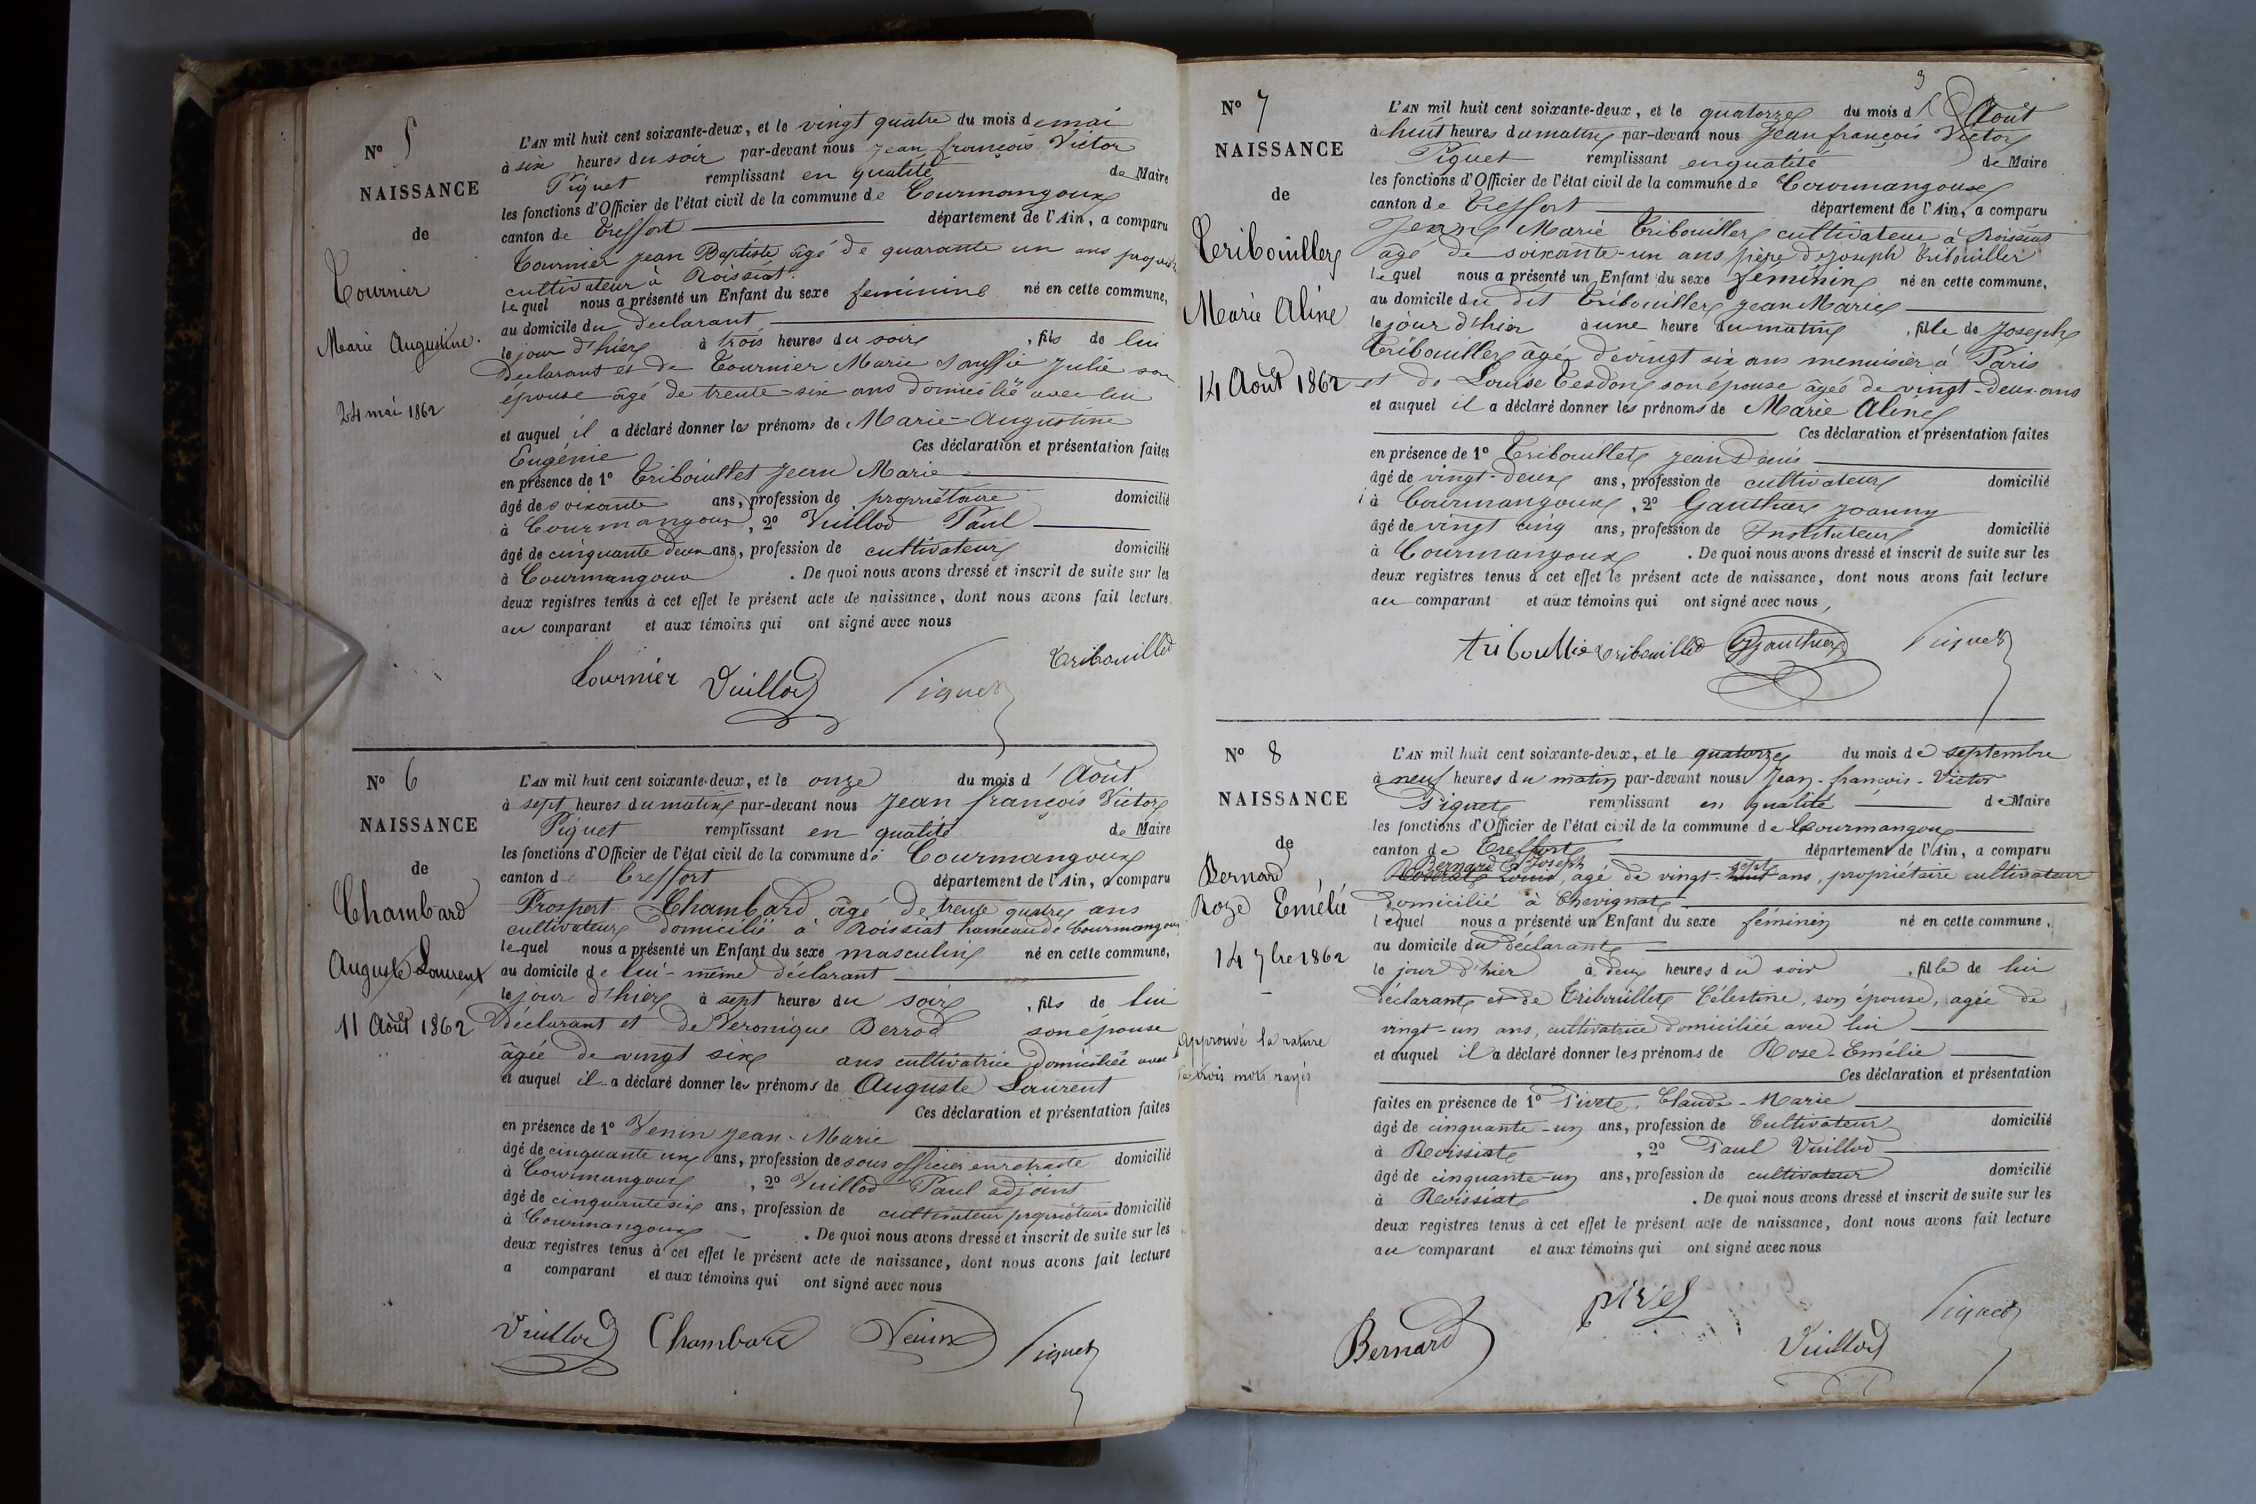 N° 5
NAISSANCE
de
Tournier
Marie Augustine.
24 mai 1862
L'AN mil huit cent soixante-deux, et le vingt quatre du mois de mai
à six heures du soir par-devant nous Jean françois Victor
Piquet remplissant en qualité de Maire
les fonctions d'Officier de l'état civil de la commune de Courmangoux
canton de Treffort département de l'Ain, a comparu
Tournier Jean Baptiste âgé de quarante un ans
cultivateur à Roissiat
lequel nous a présenté un Enfant du sexe feminine né en cette commune,
au domicile du declarant
le jour d'hier à trois heures du soir, fils de lui
declarant et de Tournier Marie Julie son
épouse âgé de trente-six ans domicilié avec lui
et auquel il a déclaré donner les prénoms de Marie-Augustine
Eugénie Ces déclaration et présentation faites
en présence de 1° Tribouillet Jean Marie
âgé de soixante ans, profession de propriétaire domicilié
à Courmangoux, 2° Vuillod Paul
âgé de cinquante deux ans, profession de cultivateur domicilié
à Courmangoux. De quoi nous avons dressé et inscrit de suite sur les
deux registres tenus à cet effet le présent acte de naissance, dont nous avons fait lecture
au comparant et aux témoins qui ont signé avec nous
Tribouillet
Tournier Vuillod Piquet
N° 6
NAISSANCE
de
Chambard
Auguste Laurent
11 Août 1862
L'AN mil huit cent soixante-deux, et le onze du mois d'Août
à sept heures du matin par-devant nous Jean françois Victor
Piquet remplissant en qualité de Maire
les fonctions d'Officier de l'état civil de la commune de Courmangoux
canton de Treffort département de l'Ain, a comparu
Prospert Chambard âgé de trente quatre ans
cultivateur domicilié à Roissiat hameau de Courmangoux
lequel nous a présenté un Enfant du sexe masculin né en cette commune,
au domicile de lui-même déclarant
le jour d'hier à sept heures du soir, fils de lui
déclarant et de Veronique Berrod son épouse
âgée de vingt six ans cultivatrice domiciliée avec
et auquel il a déclaré donner les prénoms de Auguste Laurent
Ces déclaration et présentation faites
en présence de 1° Venin Jean-Marie
âgé de cinquante un ans, profession de sous officier en retraite domicilié
à Courmangoux, 2° Vuillod Paul adjoint
âgé de cinquante six ans, profession de cultivateur propriétaire domicilié
à Courmangoux. De quoi nous avons dressé et inscrit de suite sur les
deux registres tenus à cet effet le présent acte de naissance, dont nous avons fait lecture
a comparant et aux témoins qui ont signé avec nous
Vuillod Chambard Venin Piquet
3
N° 7
NAISSANCE
de
Tribouillet
Marie Aline
14 Août 1862
L'AN mil huit cent soixante-deux, et le quatorze du mois d'Août
à huit heures du matin par-devant nous Jean françois Victor
Piquet remplissant en qualité de Maire
les fonctions d'Officier de l'état civil de la commune de Courmangoux
canton de Treffort département de l'Ain, a comparu
Jean Marie Tribouillet cultivateur à Roissiat
âgé de soixante-un ans père de Joseph Tribouillet
lequel nous a présenté un Enfant du sexe feminin né en cette commune,
au domicile du dit Tribouillet Jean Marie
le jour d'hier à une heure du matin, fille de Joseph
Tribouillet âgé de vingt six ans menuisier à Paris
et de Louise Tesdon son épouse âgée de vingt-deux ans
et auquel il a déclaré donner les prénoms de Marie Aline
Ces déclaration et présentation faites
en présence de 1° Tribouillet Jean Denis
âgé de vingt-deux ans, profession de cultivateur domicilié
à Courmangoux, 2° Gauthier Joanny
âgé de vingt cinq ans, profession de Instituteur domicilié
à Courmangoux. De quoi nous avons dressé et inscrit de suite sur les
deux registres tenus à cet effet le présent acte de naissance, dont nous avons fait lecture
au comparant et aux témoins qui ont signé avec nous,
triboullie tribouillet Gauthier Piquet
N° 8
NAISSANCE
de
Bernard
Roze Emélié
14 7bre 1862
Approuvé la rature
de trois mots rayés
L'AN mil huit cent soixante-deux, et le quatorze du mois de septembre
à neuf heures du matin par-devant nous Jean-françois-Victor
Piquet remplissant en qualité de Maire
les fonctions d'Officier de l'état civil de la commune de Courmangoux
canton de Treffort département de l'Ain, a comparu
Bernard Joseph sept
âgé de vingt-huit ans, propriétaire cultivateur
domicilié à Chevignat
lequel nous a présenté un Enfant du sexe féminin né en cette commune,
au domicile du déclarant
le jour d'hier à deux heures du soir, fille de lui
déclarant et de Tribouillet Célestine, son épouse, agée de
vingt-un ans, cultivatrice domiciliée avec lui
et auquel il a déclaré donner les prénoms de Rose-Emélie
Ces déclaration et présentation
faites en présence de 1° Pivet, Claude-Marie
âgé de cinquante-un ans, profession de Cultivateur domicilié
à Roissiat, 2° Paul Vuillod
âgé de cinquante-un ans, profession de cultivateur domicilié
à Roissiat. De quoi nous avons dressé et inscrit de suite sur les
deux registres tenus à cet effet le présent acte de naissance, dont nous avons fait lecture
au comparant et aux témoins qui ont signé avec nous
Bernard pivet Vuillod Piquet